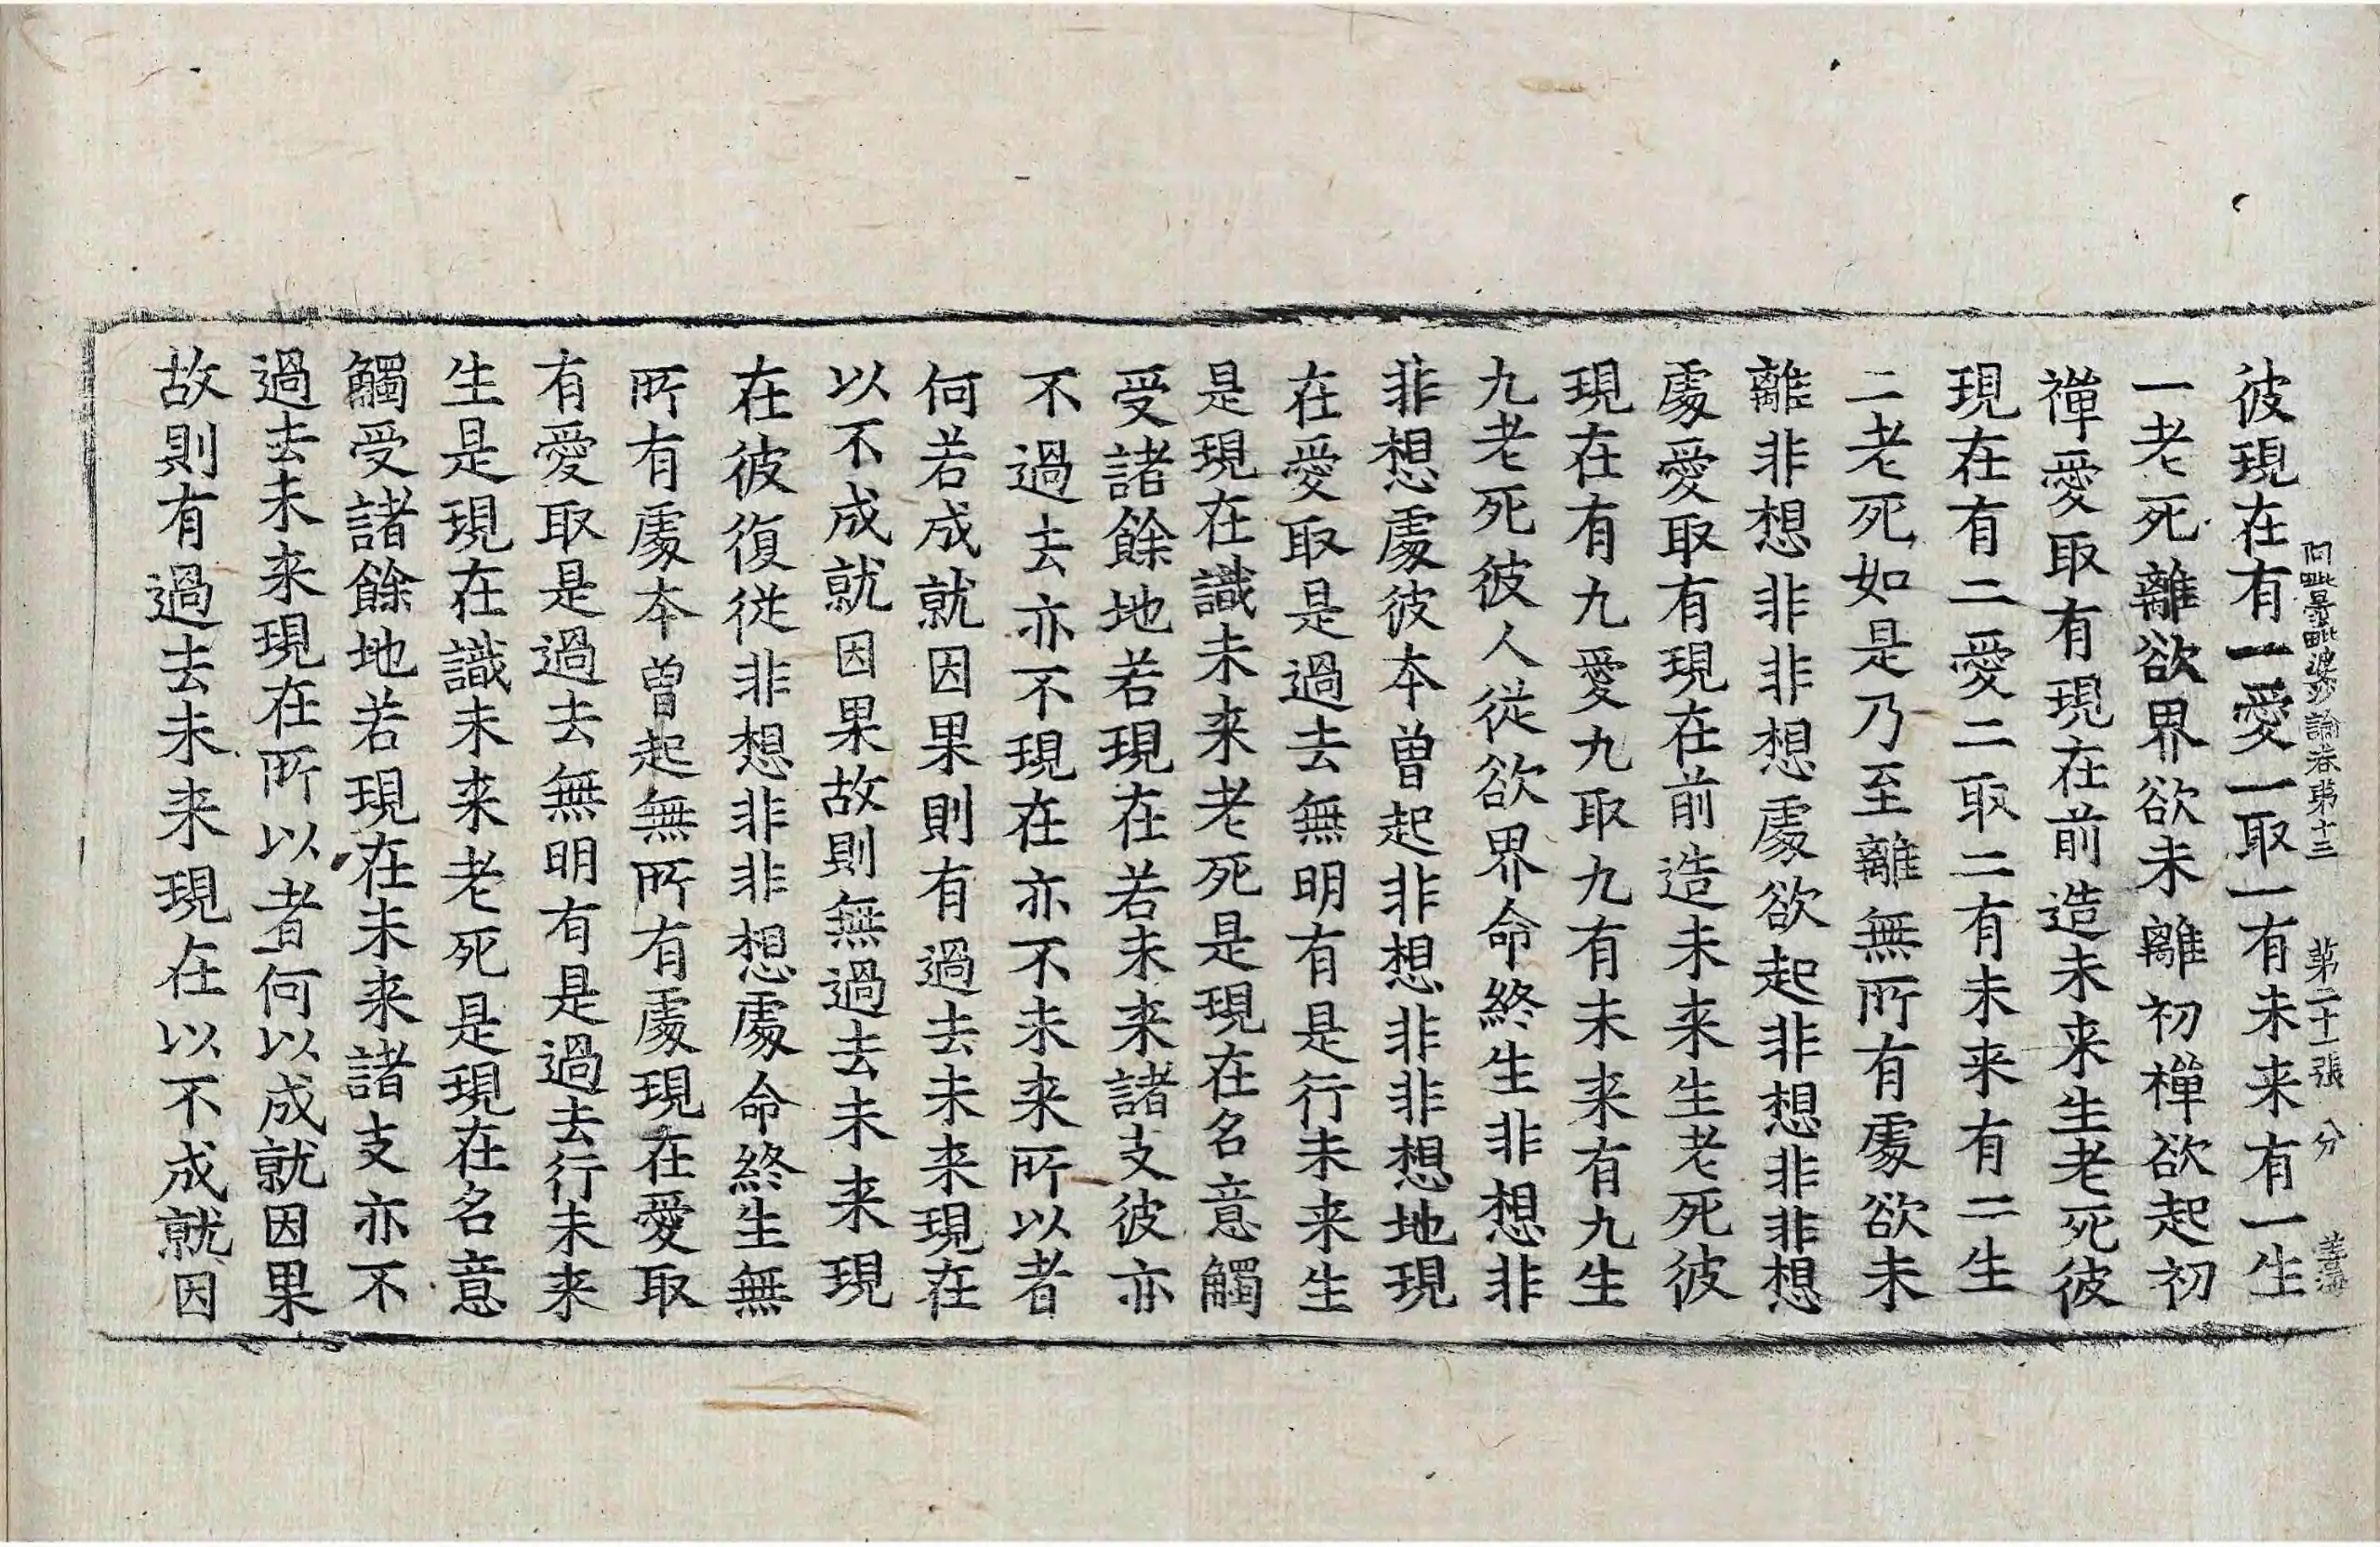 阿毗曇毗婆沙論卷第十三 第二十一張 分
彼現在有一愛一取一有未来有一生
一老死離欲界欲未離初禪欲起初
禪愛取有現在前造未来生老死彼
現在有二愛二取二有未来有二生
二老死如是乃至離無所有處欲未
離非想非非想處欲起非想非非想
處愛取有現在前造未来生老死彼
現在有九愛九取九有未来有九生
九老死彼人從欲界命終生非想非
非想處彼本曾起非想非非想地現
在愛取是過去無明有是行未来生
是現在識未来老死是現在名意觸
受諸餘地若現在若未来諸支彼亦
不過去亦不現在亦不未来所以者
何若成就因果則有過去未来現在
以不成就因果故則無過去未来現
在彼復從非想非非想處命終生無
所有處本曾起無所有處現在愛取
有愛取是過去無明有是過去行未来
生是現在識未来老死是現在名意
觸受諸餘地若現在未来諸支亦不
過去未来現在所以者何以成就因果
故則有過去未来現在以不成就因